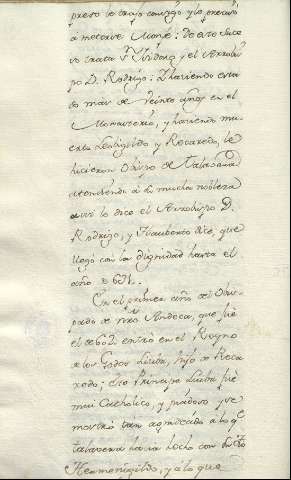 preso le trajo consigo y lo
a meterse Monje: de este
trata Sn Ysidoro, y el Arzobis
po D. Rodrigo: y haviendo esta
do mas de veinte años en el
Monasterio, y haviendo mu
erto Leobigildo y Recaredo, le
hicieron Obispo de Talavera
atendiendo a la mucha nobleza
asi lo dice el Arzobispo D.
Rodrigo, y Hauberto dice, que
llegó con la dignidad hasta el
año de 631.
En el primer año del Obis-
pado de nro Andeca, que fue
el de 602. entró en el Reyno
de los Godos Liuba, hijo de Reca
redo; este Principe Liuba fue
mui Catholico, y piadoso y se
mostró tan agradecido a lo qe
talavera havia hecho con
Hermenigildo, y a lo que